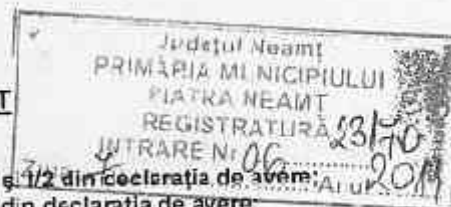 Județul Neamț
PRIMĂRIA MUNICIPIULUI
PIATRA NEAMȚ
T
REGISTRATURĂ 23170
INTRARE Nr 06
2011
1/2 din declarația de avere;
din declarația de avere;